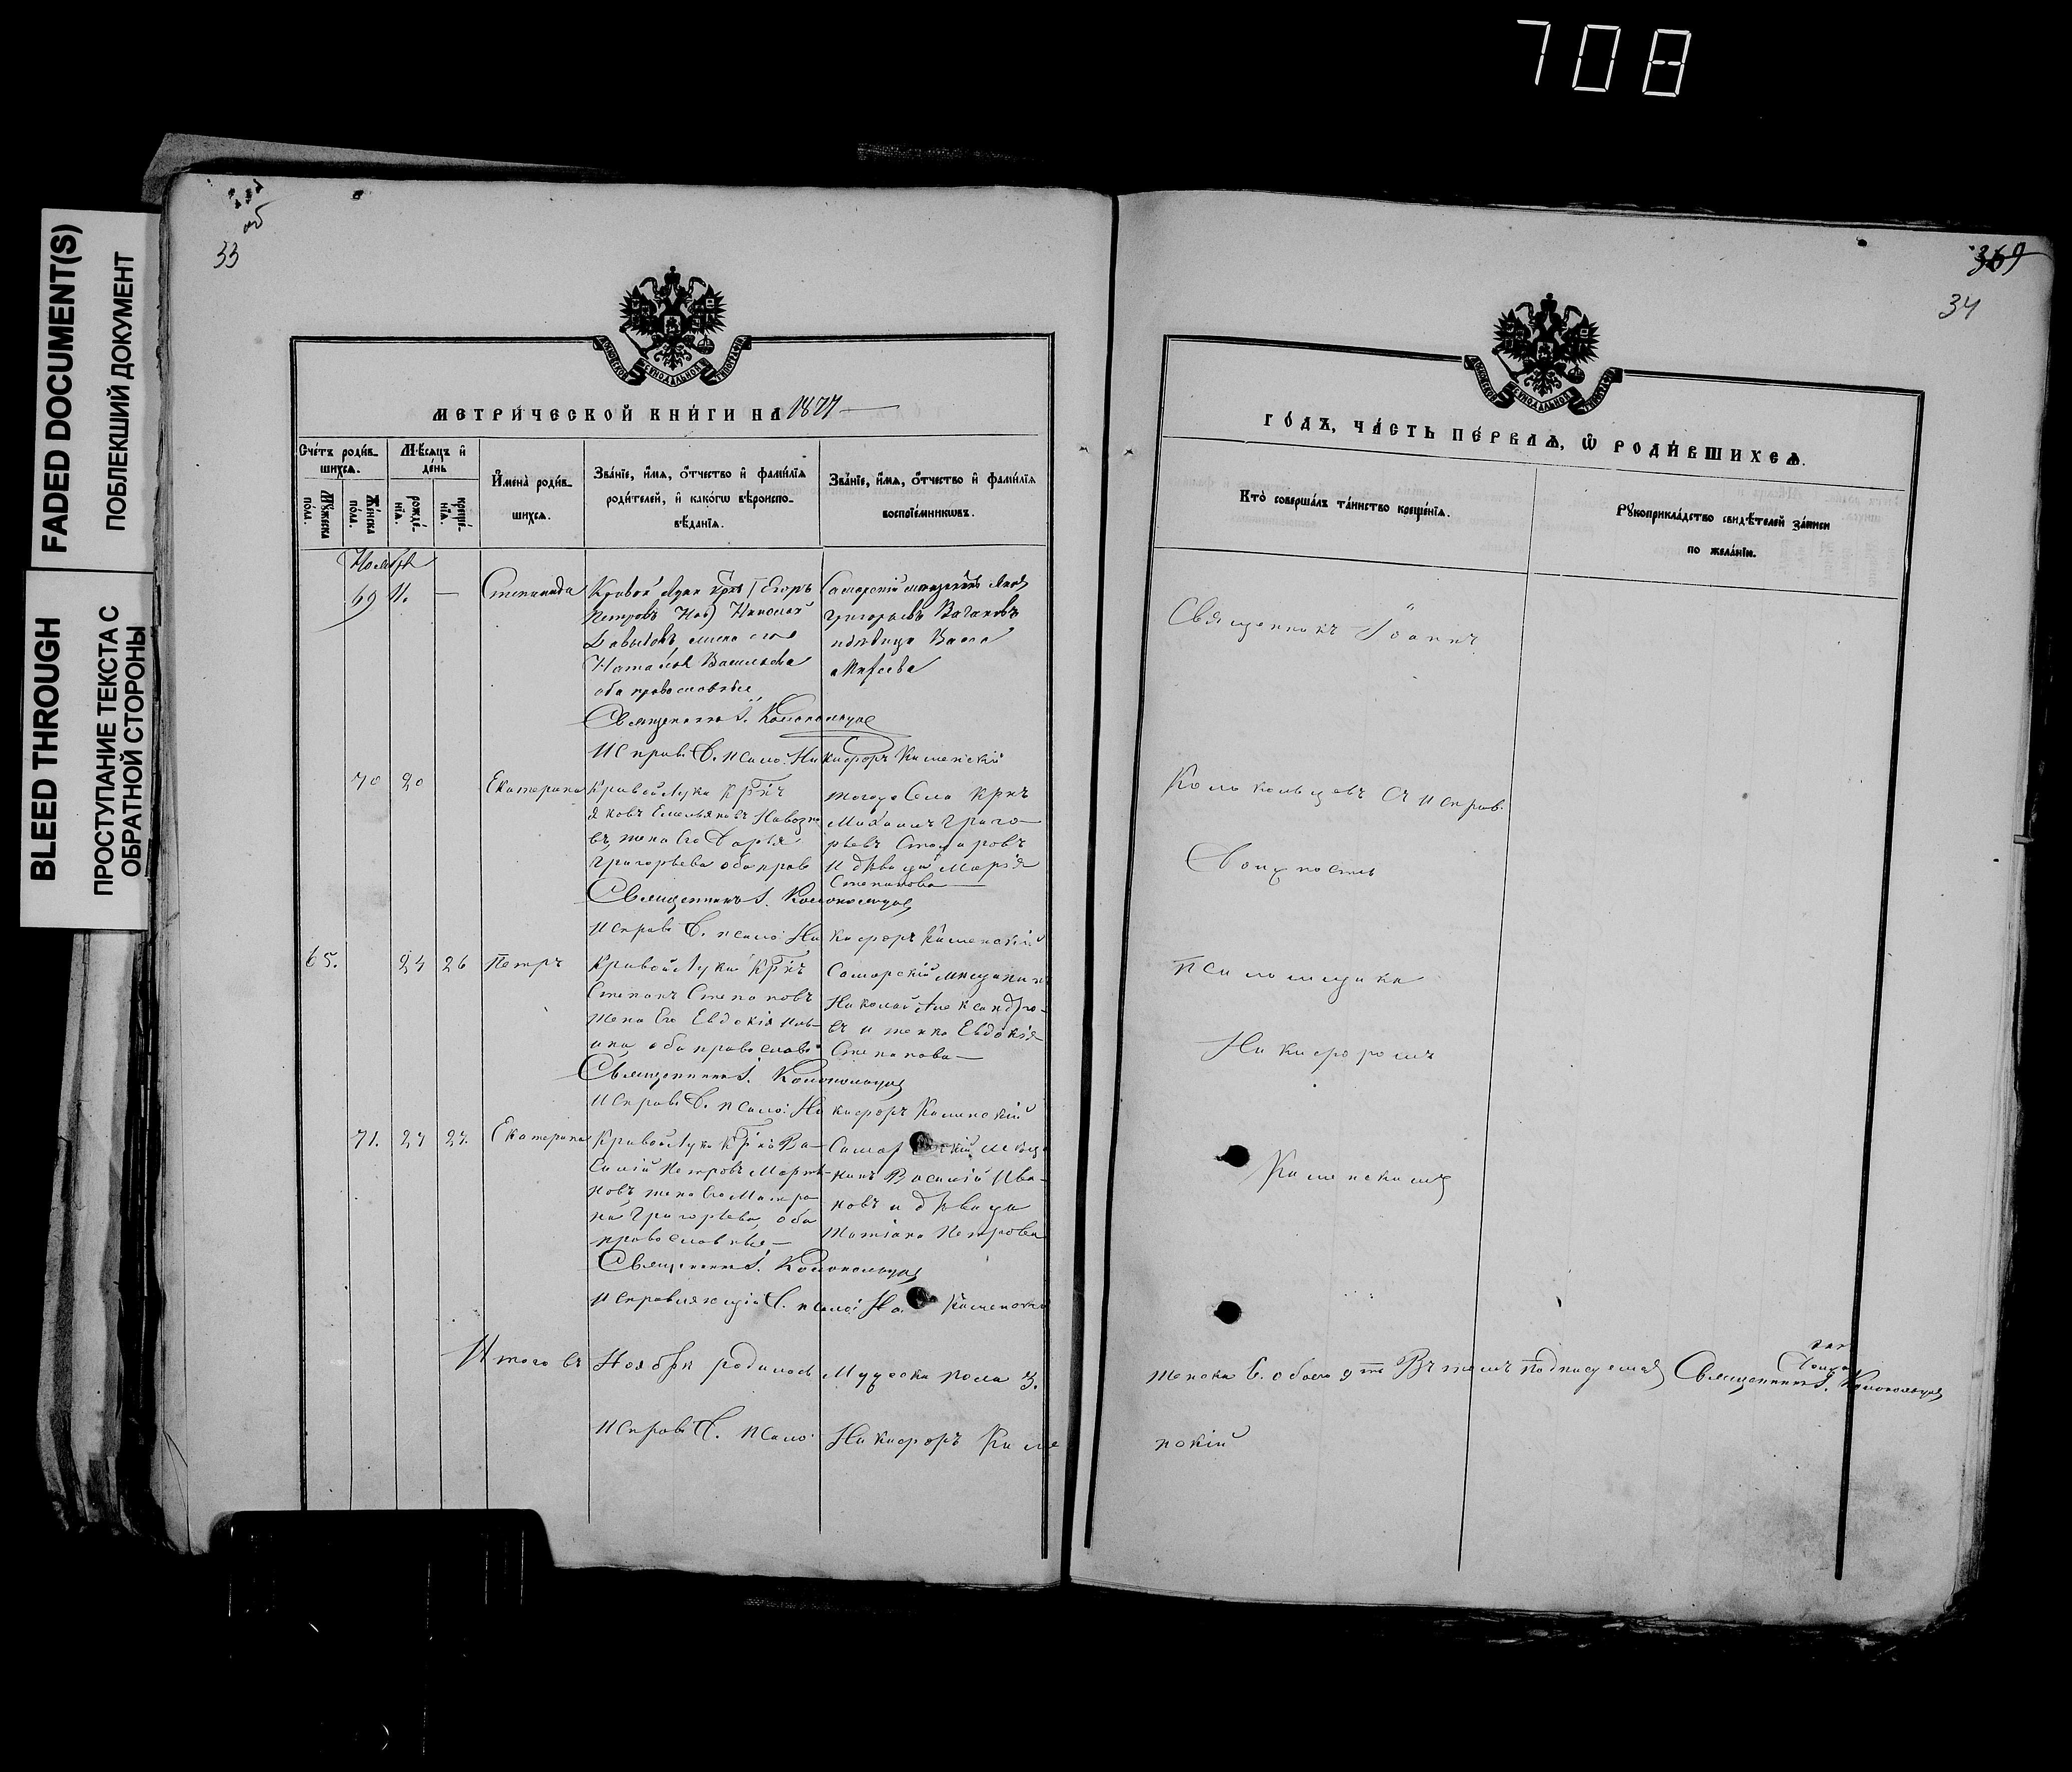 708
FADED DOCUMENT(S)
ПОБЛЕКШИЙ ДОКУМЕНТ
BLEED THROUGH
ПРОСТУПАНИЕ ТЕКСТА С
ОБРАТНОЙ СТОРОНЫ
об
33
369
34
МОСКОВСКОЙ СѴНОДАЛЬНОЙ ТИПОГРАФІИ
МЕТРИ́ЧЕСКОЙ КНИ́ГИ НА 1877
Сче́тъ роди́в-
шихсѧ.
Мѣ́сѧцъ и҆
де́нь
Мꙋ́жеска
по́ла.
Же́нска
по́ла.
рожде́-
нїѧ.
креще́-
нїѧ.
И҆мена̀ роди́в-
шихсѧ.
Зва́нїе, и҆́мѧ, ѻ҆́тчество и҆ фами́лїѧ
роди́телей, и҆ како́гѡ вѣроиспо-
вѣ́данїѧ.
Зва́нїе, и҆́мѧ, ѻ҆́тчество и҆ фами́лїѧ
воспрїе́мникѡвъ.
Ноябрь
69 11. — Степанида
Кривой Луки Крнъ (Егоръ
Петровъ Нов) Николай
Давыдовъ жена его
Наталья Васильева
оба православные
Самарскій мещанинъ Яков
Григорьевъ
и девица Васса
Священникъ І. Колокольцев
Исправ. д. псало. Никифоръ Каменскій
70 20 Екатерина
Кривой Луки Крнъ
Яковъ Емельяновъ
въ, жена его Дарья
Григорьева оба прав
того Села крнъ
Михаилъ Григо-
рьевъ Столяровъ
и дѣвица Марія
Степанова
Священникъ І. Колокольцев
Исправ. д. псало. Никифоръ Каменскій
65. 24 26 Петръ
Кривой Луки Крнъ
Степанъ Степановъ
жена Его Евдокія
оба православ.
Самарскій мещанинъ
Николай Александро-
въ и жена Евдокія
Степанова
Священникъ І. Колокольцев
Исправ. д. псало. Никифоръ Каменскій
71. 27 27. Екатерина
Кривой Луки Крнъ Ва-
силій Петровъ Марты-
новъ жена Его Матро-
на Григорьева, оба
православные
Самарскій меща
нинъ Василій Ива-
новъ и дѣвица
Татіана Петрова
Священникъ І. Колокольцев
Исправляющій д. псало: Каменскій
Итого въ Ноябрѣ родилось Мужеска пола 3.
Исправ. д. псало. Никифоръ Каме
МОСКОВСКОЙ СѴНОДАЛЬНОЙ ТИПОГРАФІИ
ГО́ДЪ, ЧА́СТЬ ПЕ́РВАѦ, Ѡ҆ РОДИ́ВШИХСѦ.
Кто̀ соверша́лъ та́инство креще́нїѧ.
Рꙋкоприкла́дство свидѣ́телей за́писи
по жела́нїю.
Священникъ Іоаннъ
Колокольцевъ Съ исправ.
Должность
псаломщика
Никифоромъ
Каменскимъ
женска 6. обоего 9ть Въ томъ подписуемся Священникъ І. Колокольцев
нскій